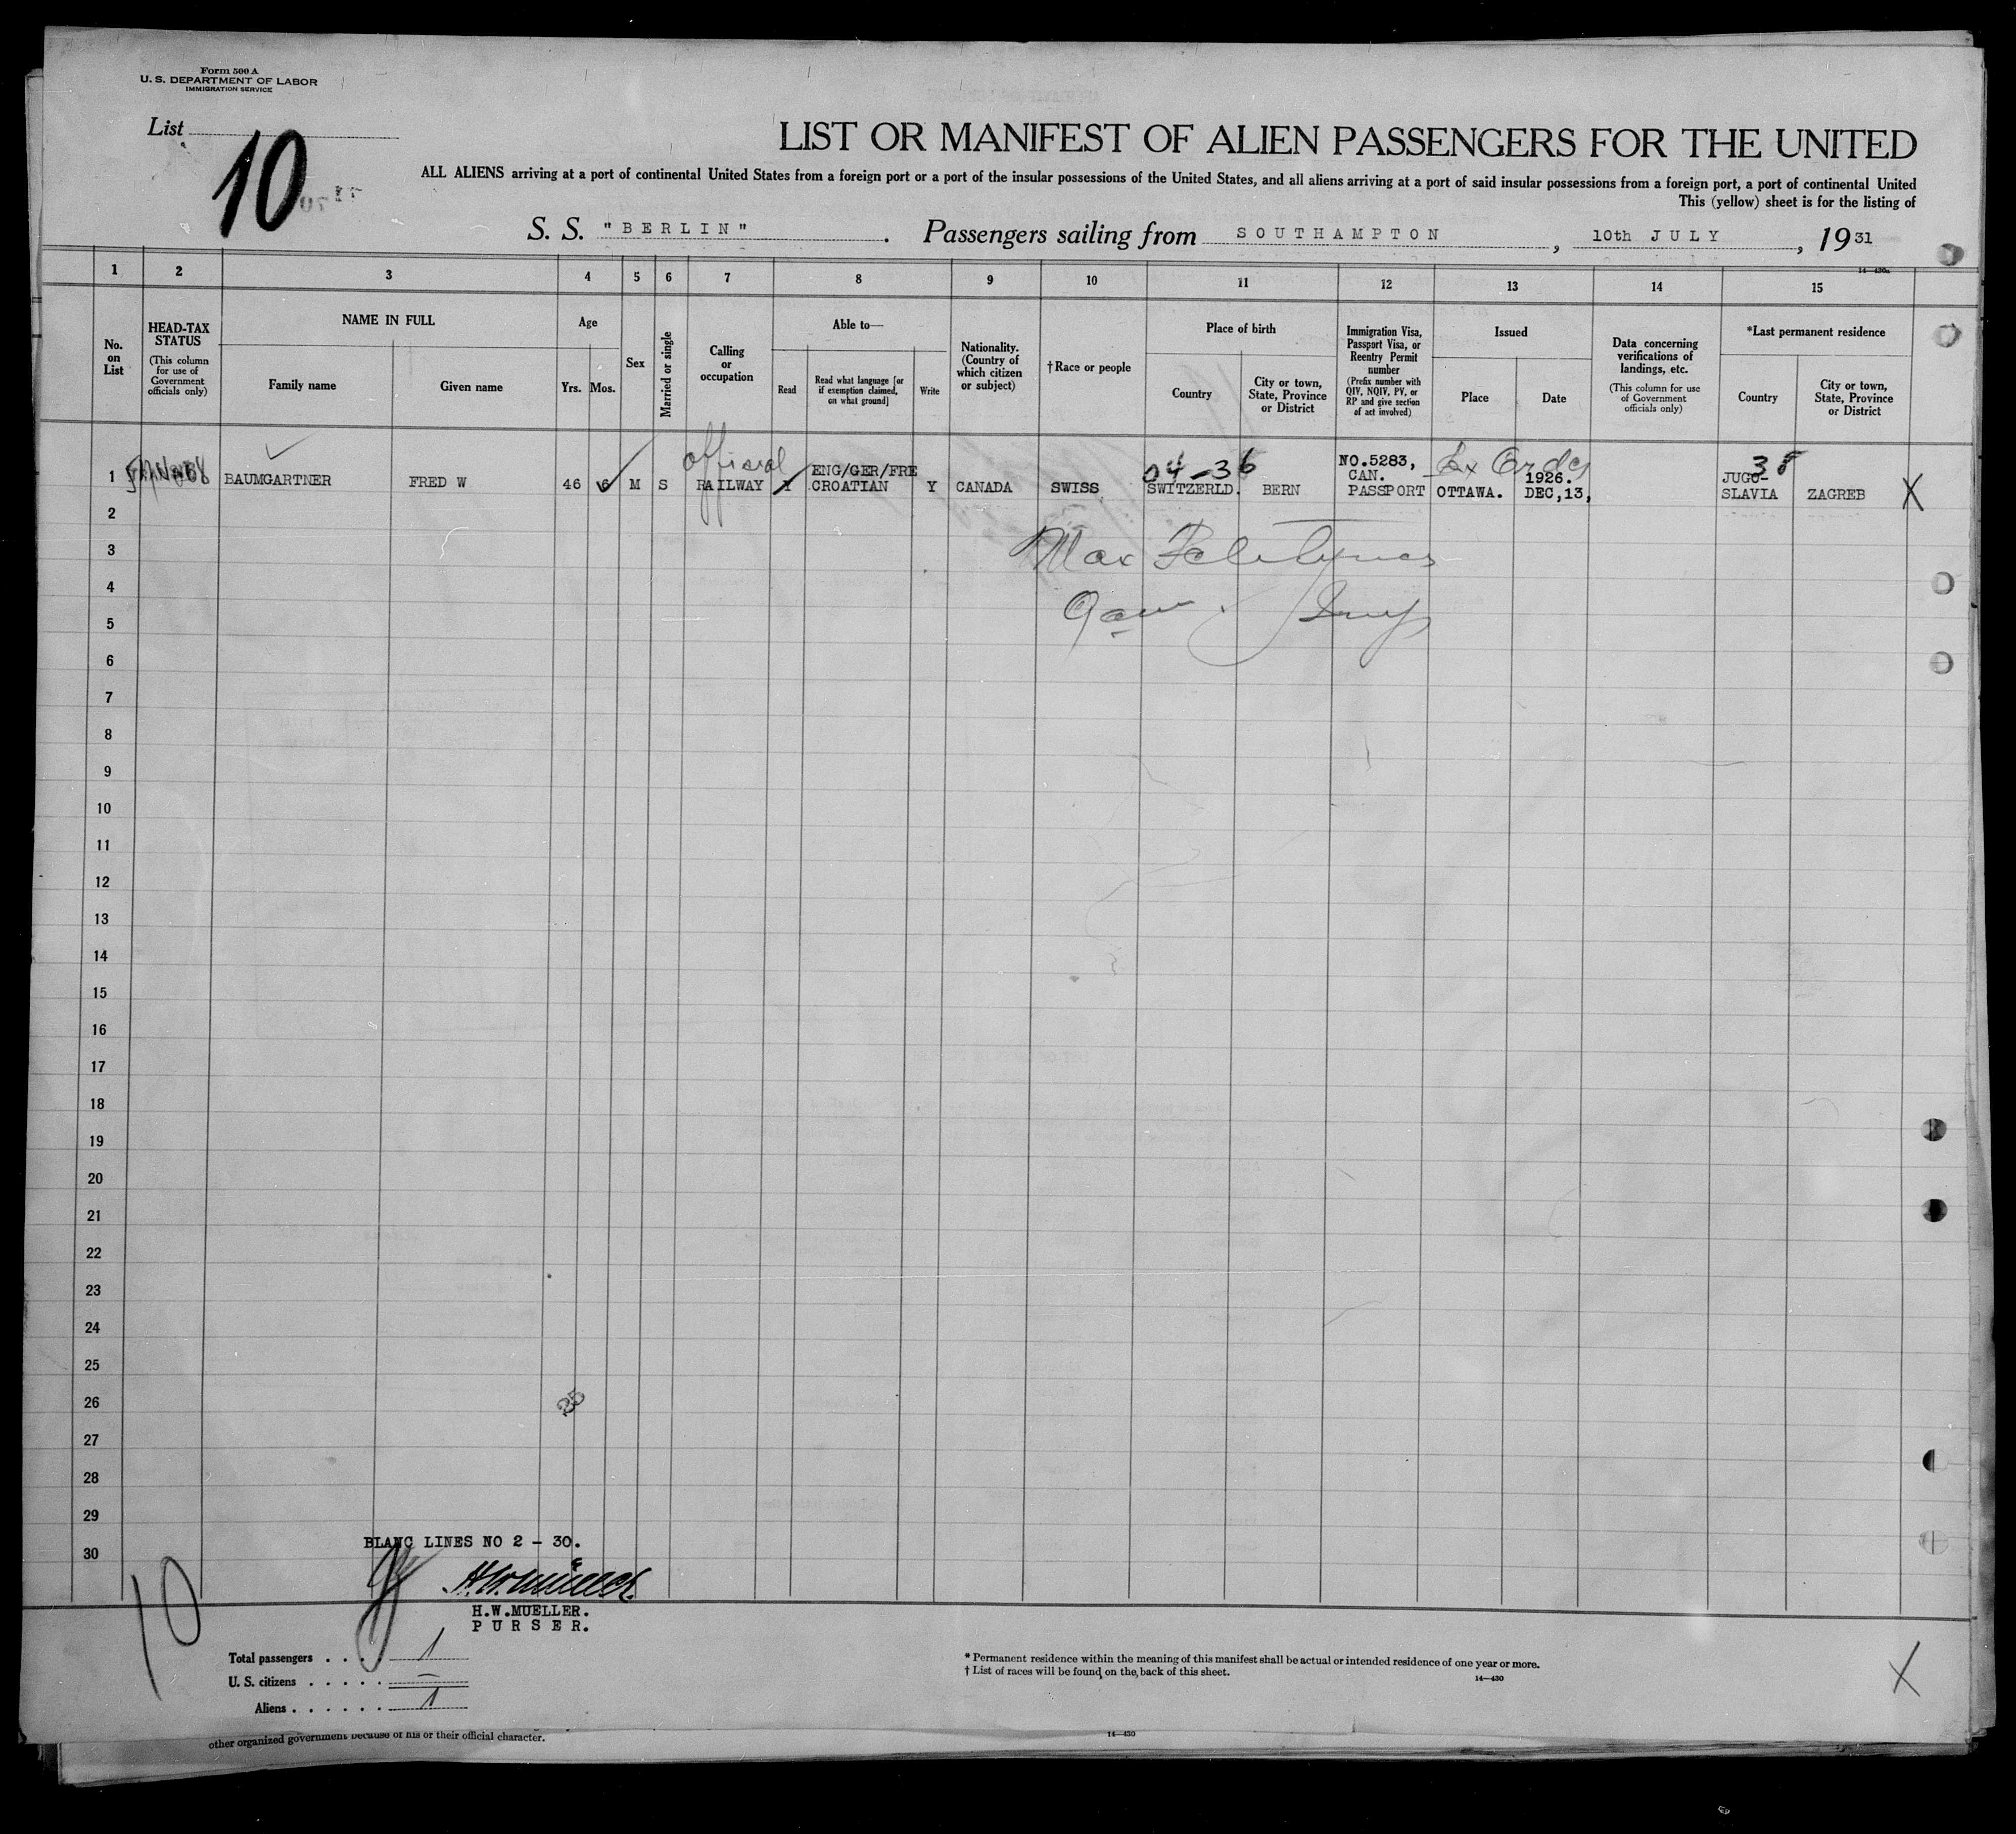 Form 500 A
U. S. DEPARTMENT OF LABOR
IMMIGRATION SERVICE
List
10
LIST OR MANIFEST OF ALIEN PASSENGERS FOR THE UNITED
ALL ALIENS arriving at a port of continental United States from a foreign port or a port of the insular possessions of the United States, and all aliens arriving at a port of said insular possessions from a foreign port, a port of continental United
This (yellow) sheet is for the listing of
S. S. "BERLIN". Passengers sailing from SOUTHAMPTON, 10th JULY, 1931
14—430a
1 2 3 4 5 6 7 8 9 10 11 12 13 14 15
No. on List
HEAD-TAX STATUS
(This column for use of Government officials only)
NAME IN FULL
Family name
Given name
Age
Yrs. Mos.
Sex
Married or single
Calling or occupation
Able to—
Read
Read what language [or if exemption claimed, on what ground]
Write
Nationality. (Country of which citizen or subject)
†Race or people
Place of birth
Country
City or town, State, Province or District
Immigration Visa, Passport Visa, or Reentry Permit number
(Prefix number with QIV, NQIV, PV, or RP and give section of act involved)
Issued
Place
Date
Data concerning verifications of landings, etc.
(This column for use of Government officials only)
*Last permanent residence
Country
City or town, State, Province or District
official
04-36
38
ENG/GER/FRE NO.5283, 1926. JUGO-
CAN.
1 BAUMGARTNER FRED W 46 6 M S RAILWAY Y CROATIAN Y CANADA SWISS SWITZERLD. BERN PASSPORT OTTAWA. DEC,13, SLAVIA ZAGREB X
2
3
Max
4
5
6
7
8
9
10
11
12
13
14
15
16
17
18
19
20
21
22
23
24
25
26
35
27
28
29
30
BLANC LINES NO 2 - 30.
10
H.W.MUELLER.
PURSER.
Total passengers . . . . 1
U. S. citizens . . . . . —
Aliens . . . . . . 1
* Permanent residence within the meaning of this manifest shall be actual or intended residence of one year or more.
† List of races will be found on the back of this sheet.
14—430
X
other organized government because of his or their official character.
14—430